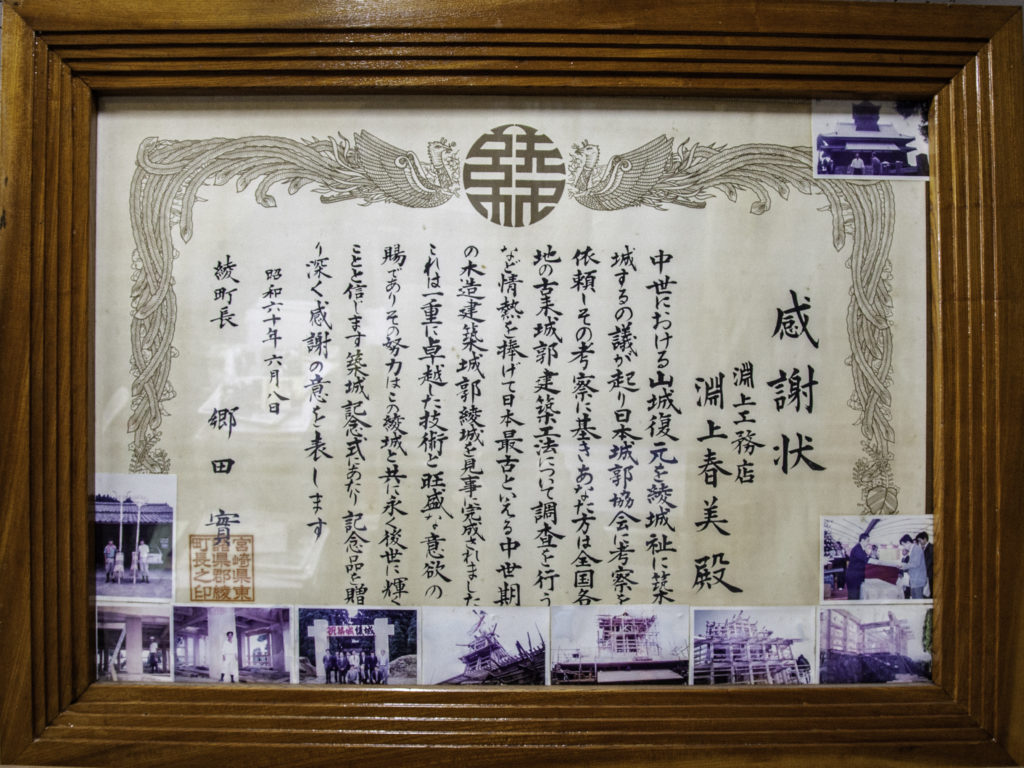 感謝状
淵上工務店
淵上春美殿
中世における山城復元を綾城祉に築
城するの議が起り日本城郭協会に考察を
依頼しその考察に基きあなた方は全国各
地の古来城郭建築工法について調査を行う
など情熱を捧げて日本最古といえる中世期
の木造建築城郭綾城を見事に完成されました
これは一重に卓越した技術と旺盛な意欲の
賜でありその努力はこの綾城と共に永く後世に輝く
ことと信じます築城記念式にあたり記念品を贈
り深く感謝の意を表します
昭和六十年六月八日
綾町長 郷田實
宮崎県東
諸県郡綾
町長之印